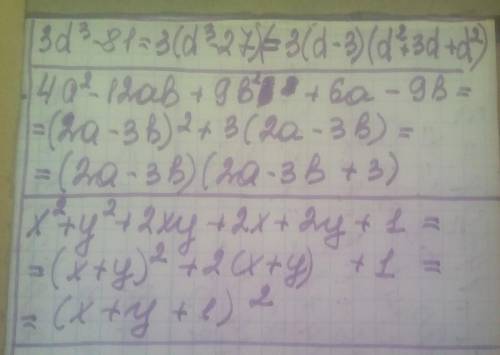 3d³-81=3(d³-27)=3(d-3)(d²+3d+d²)
4a²-12ab+9b² +6a-9b=
=(2a-3b)²+3(2a-3b)=
=(2a-3b)(2a-3b+3)
x²+y²+2xy+2x+2y+1=
=(x+y)²+2(x+y) +1=
=(x+y+1)²